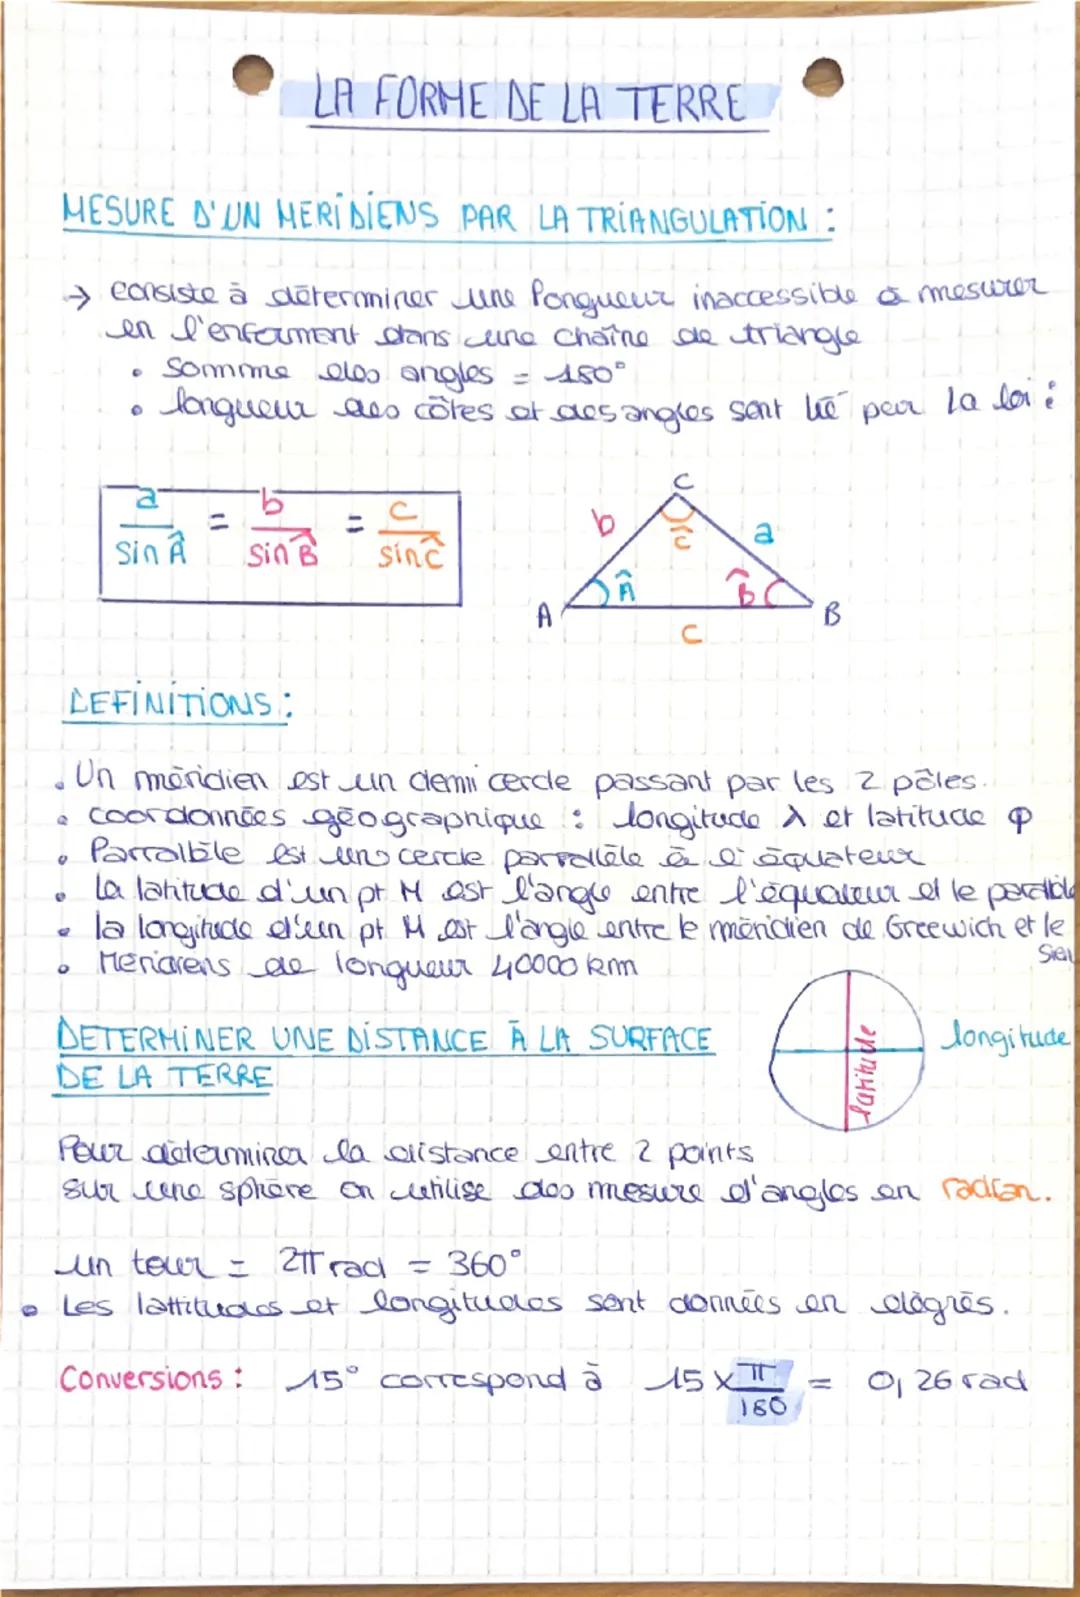 LA FORME DE LA TERRE
MESURE D'UN MERIDIENS PAR LA TRIANGULATION :
→ consiste à déterminer une longueur inaccessible à mesurer
en l'enfermant dans une chaîne de triangle
• Somme des angles = 180°
• longueur des côtes et des angles sont lié par la loi :
a / sin Â = b / sin B̂ = c / sin Ĉ
C
b
ĉ
a
Â
B̂
A
B
C
DEFINITIONS :
• Un méridien est un demi cercle passant par les 2 pôles.
• coordonnées géographique : longitude λ et latitude φ
• Parralèle est un cercle parrallèle à l'équateur
• La latitude d'un pt M est l'angle entre l'équateur et le parallèle
• la longitude d'un pt M est l'angle entre le méridien de Greewich et le
sien
• Meridiens de longueur 40000 km
DETERMINER UNE DISTANCE À LA SURFACE
DE LA TERRE
latitude
longitude
Pour déterminer la distance entre 2 points
sur une sphère on utilise des mesure d'angles en radian.
un tour = 2π rad = 360°
• Les lattitudes et longitudes sont données en degrés.
Conversions : 15° correspond à 15 × π/180 = 0,26 rad